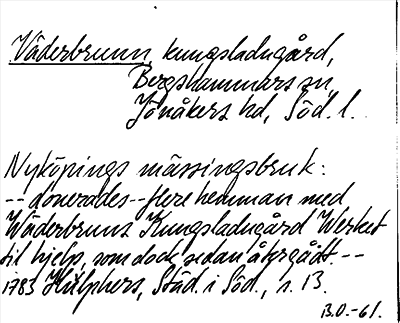 Väderbrunn, kungsladugård,
Bergshammars sn,
Jönåkers hd, Söd. l.
Nyköpings mässingsbruk:
-- donerades -- flere hemman med
Wäderbruns Kungsladugård Werket
til hjelp, som dock sedan återgådt. --
1783 Hülphers, Städ. i Söd., s. 13.
B.O.-61.